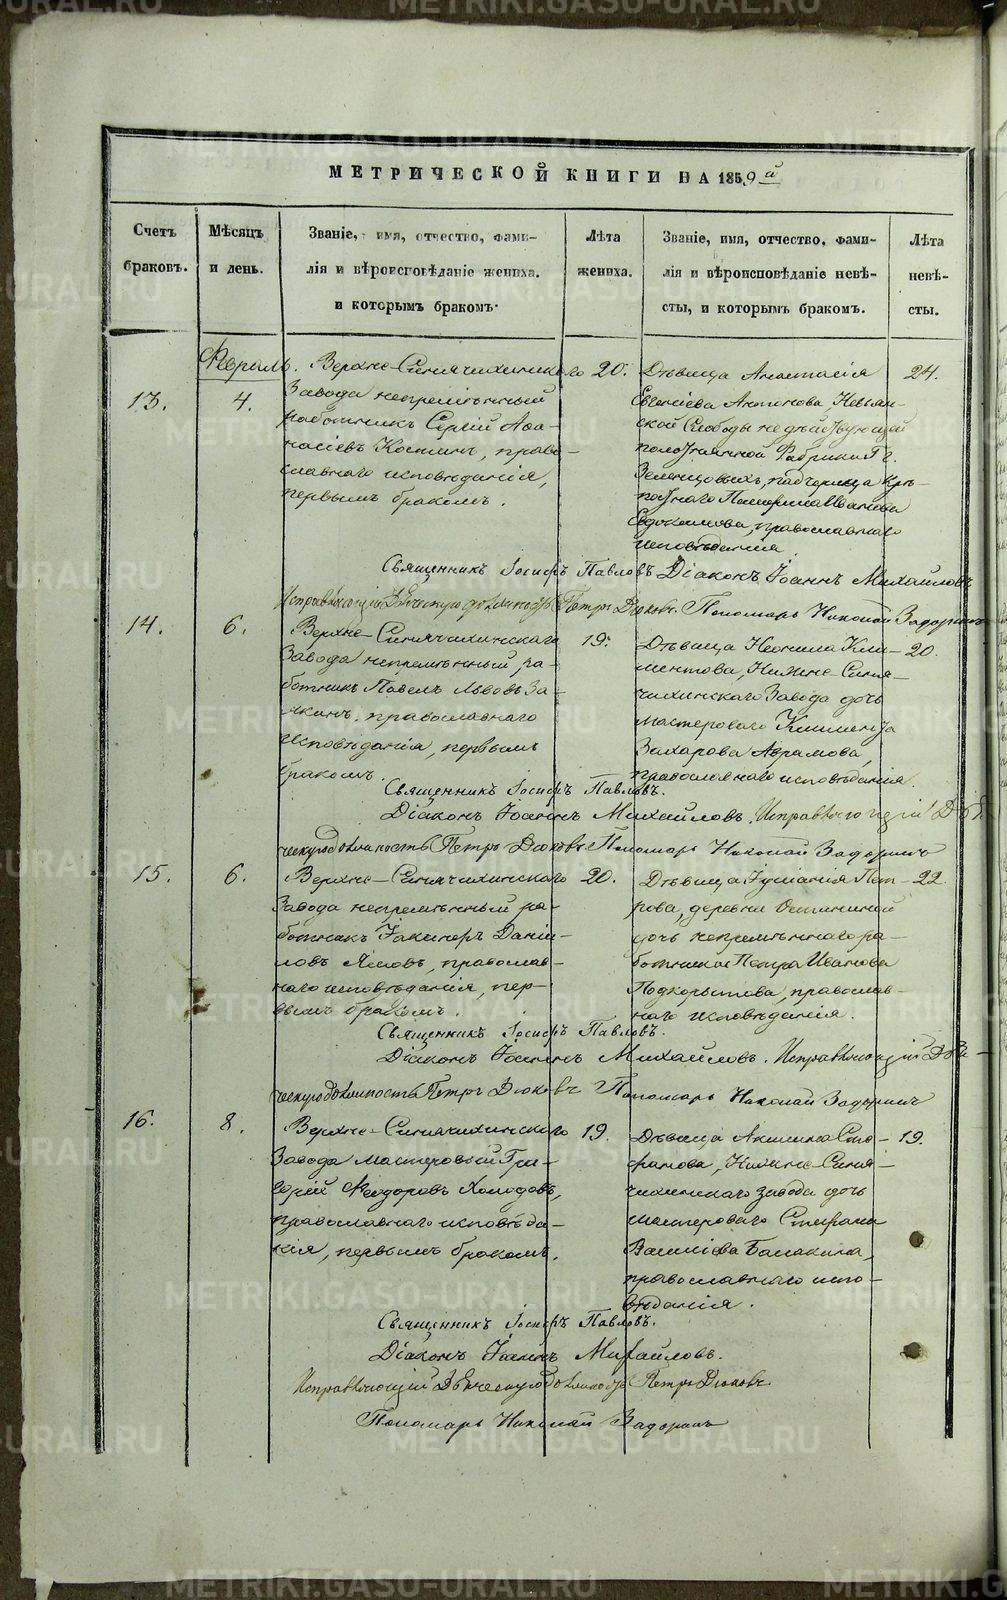 МЕТРИЧЕСКОЙ КНИГИ НА 1859й
Счетъ браковъ.
Мѣсяцъ и день.
Званіе, имя, отчество, фами-
лія и вѣроисповѣданіе жениха.
и которымъ бракомъ.
Лѣта жениха.
Званіе, имя, отчество, фами-
лія и вѣроисповѣданіе невѣ-
сты, и которымъ бракомъ.
Лѣта невѣ-
сты.
Февраль.
13.
4.
Верхне-Синячихинскаго
завода непремѣнный
работникъ Сергій Афа-
насіевъ Костинъ, право-
славнаго исповѣданія,
первымъ бракомъ.
20.
Дѣвица Анастасія
Евгеніева Антонова, Невьян-
ской Слободы недѣйствующей
полотнянной Фабрики Гг.
Зеленцовыхъ, падчерица крѣ-
Ивана
Евдокимова, православнаго
исповѣданія.
24.
Священникъ Іосифъ Павловъ Діаконъ Іоаннъ Михайловъ
Исправляющій Дьяческую должность Петръ Дюковъ. Пономарь Николай Задоринъ
14.
6.
Верхне-Синячихинскаго
завода непремѣнный ра-
ботникъ Павелъ Львовъ За-
икинъ, православнаго
исповѣданія, первымъ
бракомъ.
19.
Дѣвица Неонила Кли-
ментова, Нижне-Синя-
чихинскаго Завода дочь
мастероваго Климента
Захарова Аврамова,
православнаго исповѣданія.
20.
Священникъ Іосифъ Павловъ.
Діаконъ Іоаннъ Михайловъ. Исправляющій Дья-
ческую должность Петръ Дюковъ Пономарь Николай Задоринъ
15.
6.
Верхне-Синячихинскаго
Завода непремѣнный ра-
ботникъ Іакинфъ Даніи-
ловъ, православ-
наго исповѣданія, пер-
вымъ бракомъ.
20.
Дѣвица Іуліанія Пет-
рова, деревни
дочь непремѣннаго ра-
ботника Петра Иванова
Подкорытова, православ-
наго исповѣданія.
22.
Священникъ Іосифъ Павловъ.
Діаконъ Іоаннъ Михайловъ. Исправляющій Дья-
ческую должность Петръ Дюковъ Пономарь Николай Задоринъ
16.
8.
Верхне-Синячихинскаго
Завода мастеровый Гри-
горій Ѳеодоровъ Холодовъ,
православнаго исповѣда-
нія, первымъ бракомъ.
19.
Дѣвица Акилина Сте-
фанова, Нижне-Синя-
чихинскаго завода дочь
мастероваго Стефана
Василіева Балакина,
православнаго испо-
вѣданія.
19.
Священникъ Іосифъ Павловъ.
Діаконъ Іоаннъ Михайловъ.
Исправляющій Дьяческую должность Петръ Дюковъ
Пономарь Николай Задоринъ
METRIKI.GASO-URAL.RU